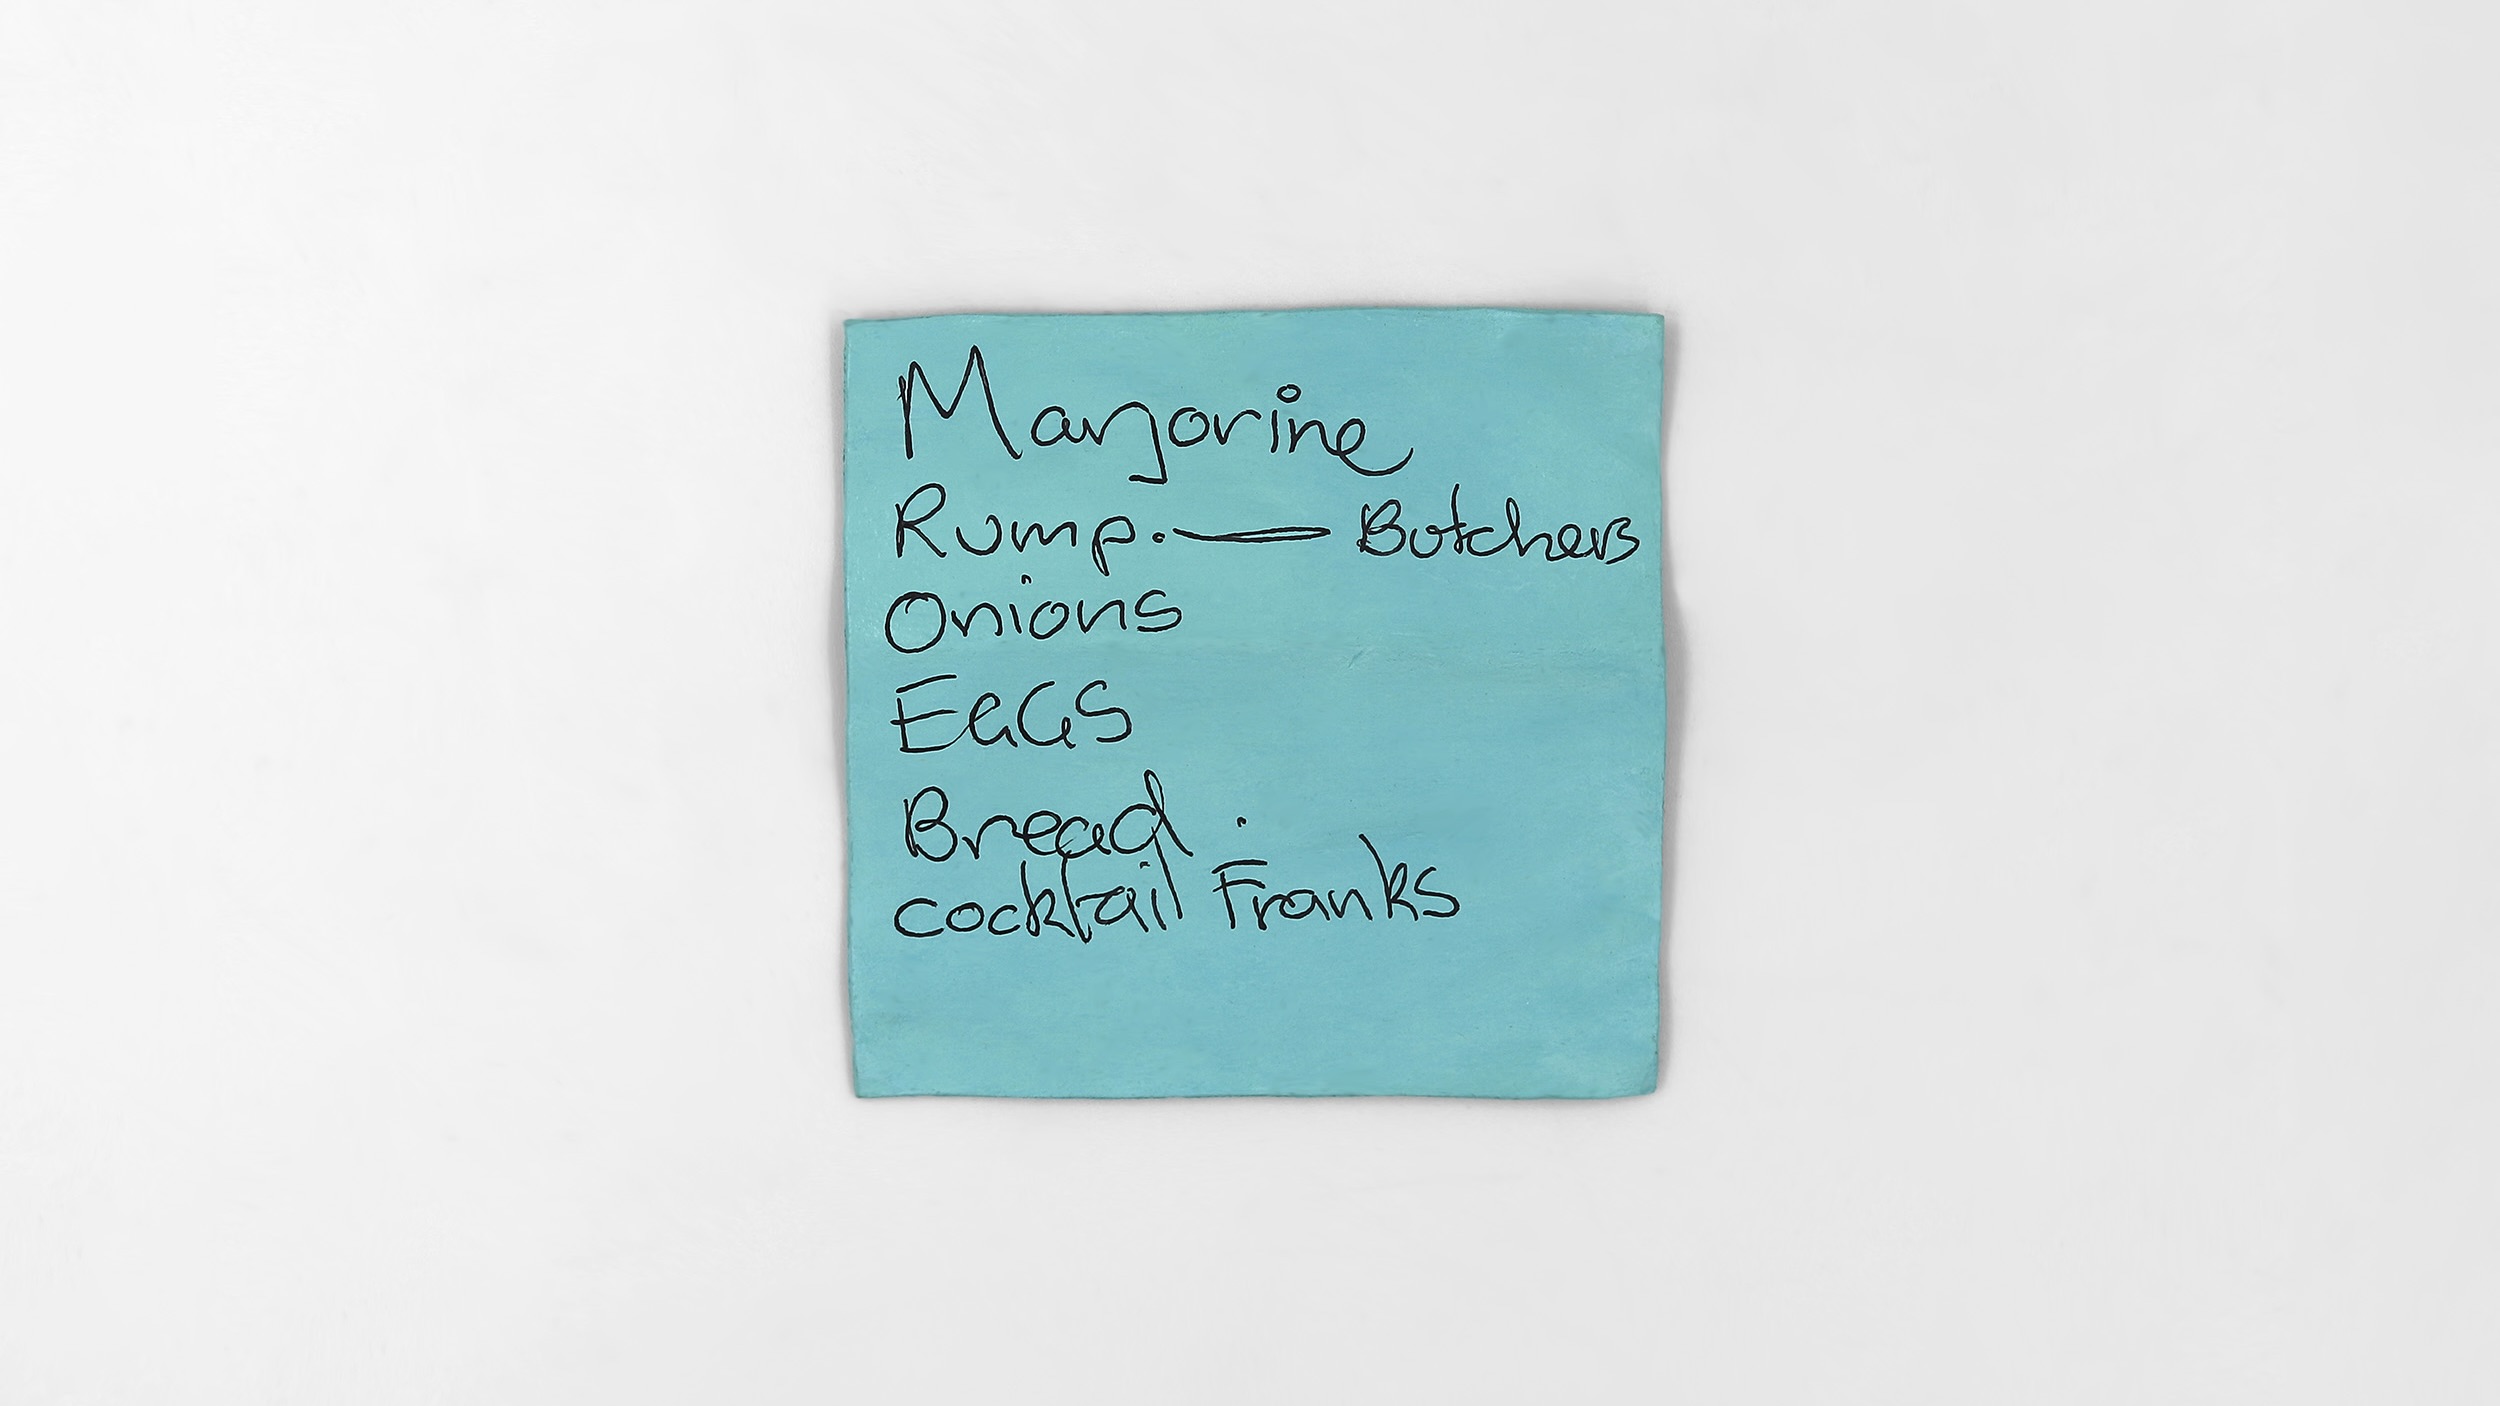 Marjorine
Rump. — Butchers
Onions
EGGS
Bread.
cocktail Franks